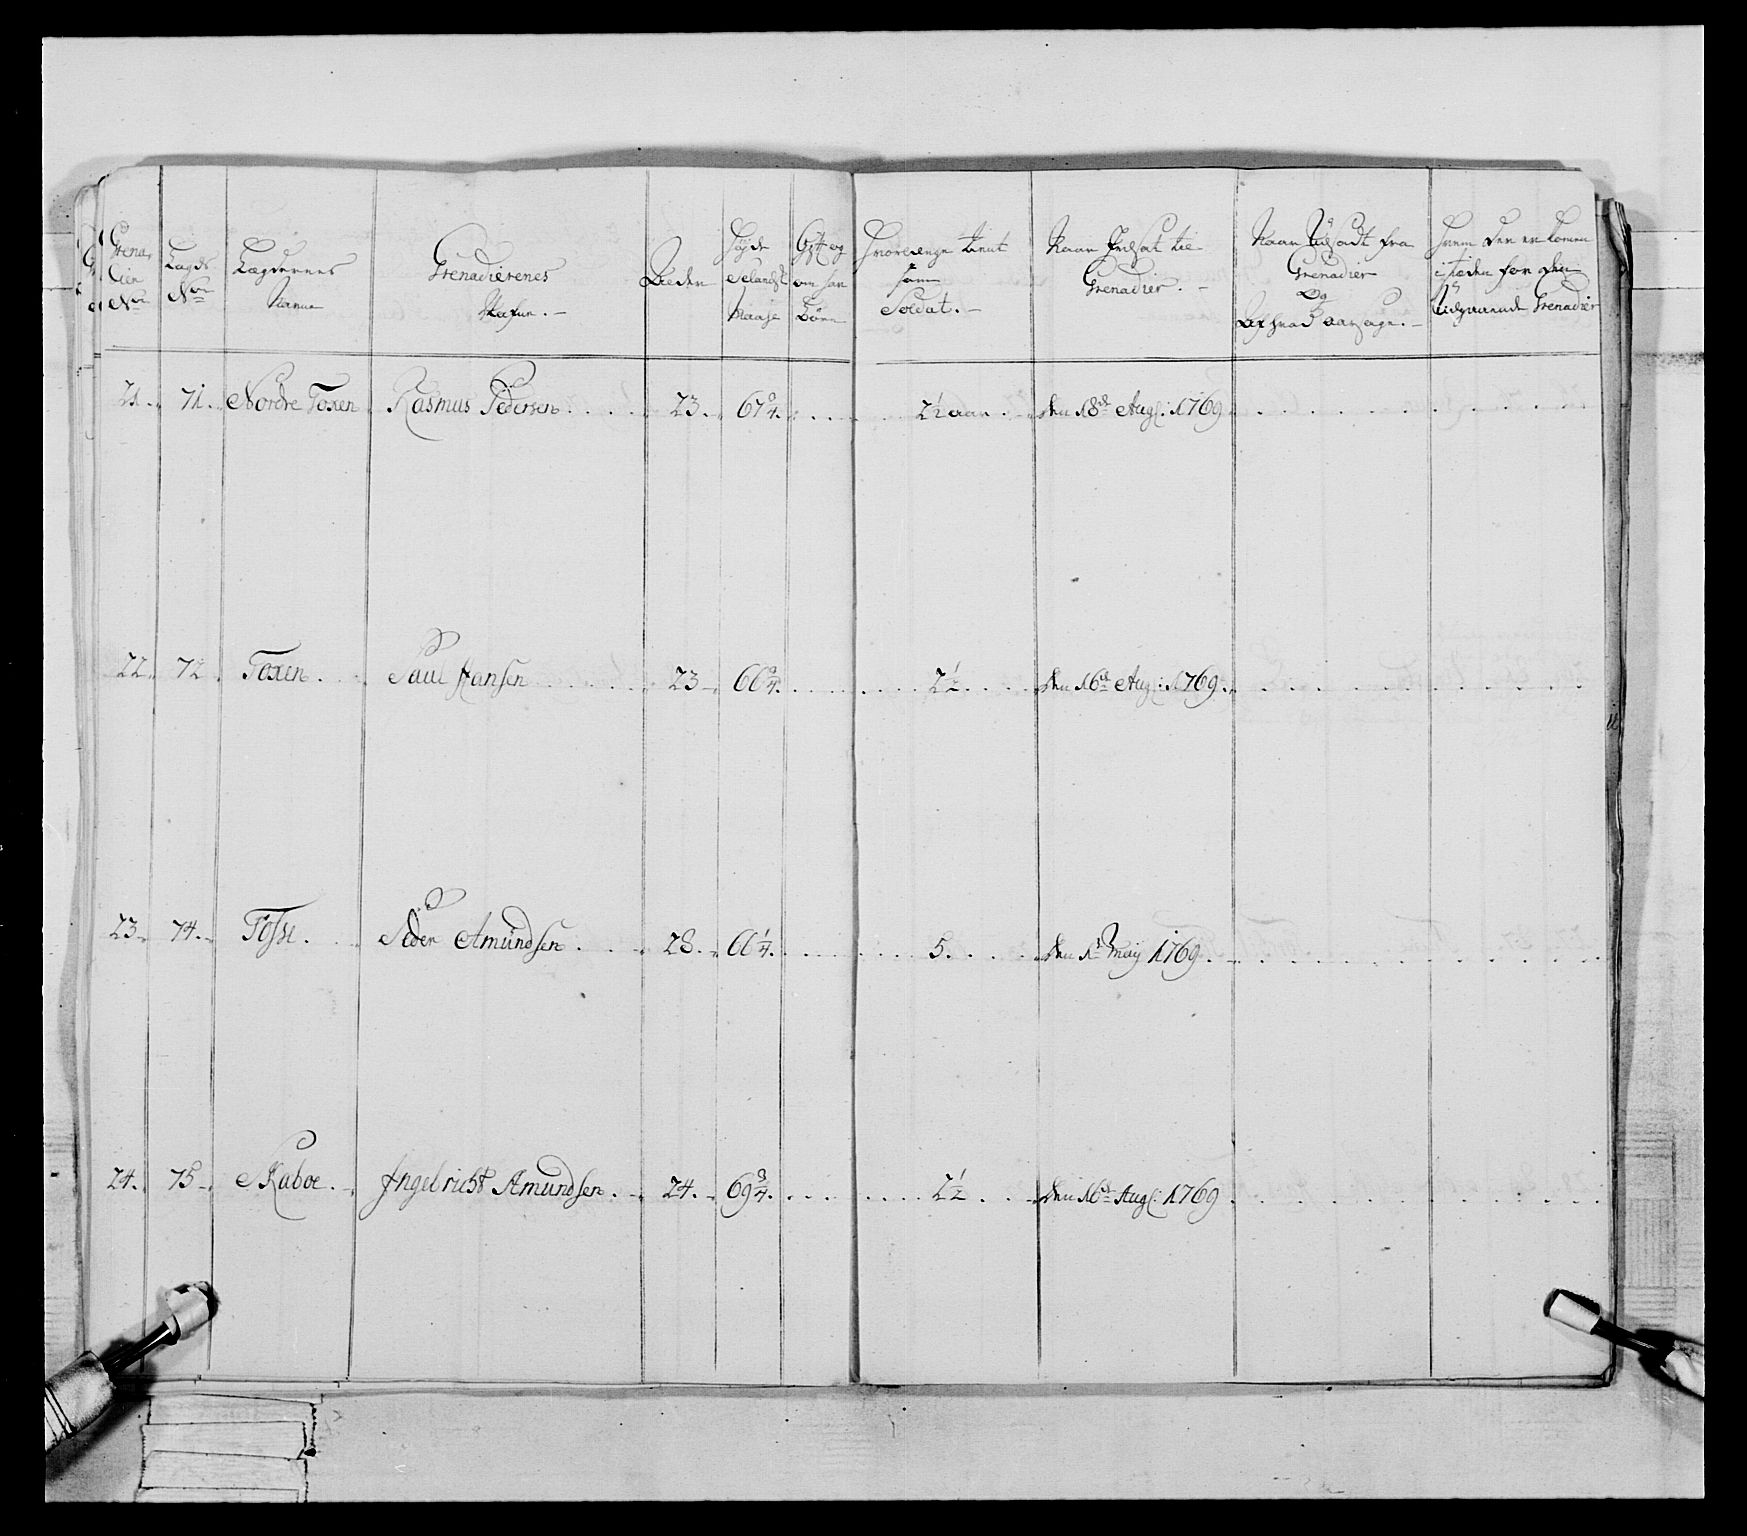 Grena-
dier
No
Lægds
No
Lægdernes
Nafne
Grenadierenes
Nafne. –
Alder
Høyde
Selandsk
Maase
Gift og
om har
Børn
Hvorlænge tient
som
Soldat. –
Naar Indsat til
Grenadier. –
Naar Udsadt fra
Grenadier
Og
Hvem der er komen
i stæden for den
Udgaaende Grenadier
21. 71. Nordre Toxen Rasmus Pedersen. 23. 67 3/4. 2 1/2 aar. den 18de Aug: 1769
22. 72 Toxen. Paul Hansen 23 66 3/4. 2 1/2. den 16de Aug: 1769.
23. 74. Fosse. Peder Amundsen. 28. 66 1/4. 5. den 1te May 1769.
24. 75 Skaboe. Ingelricht Amundsen. 24. 69 3/4. 2 1/2. den 16de Aug: 1769